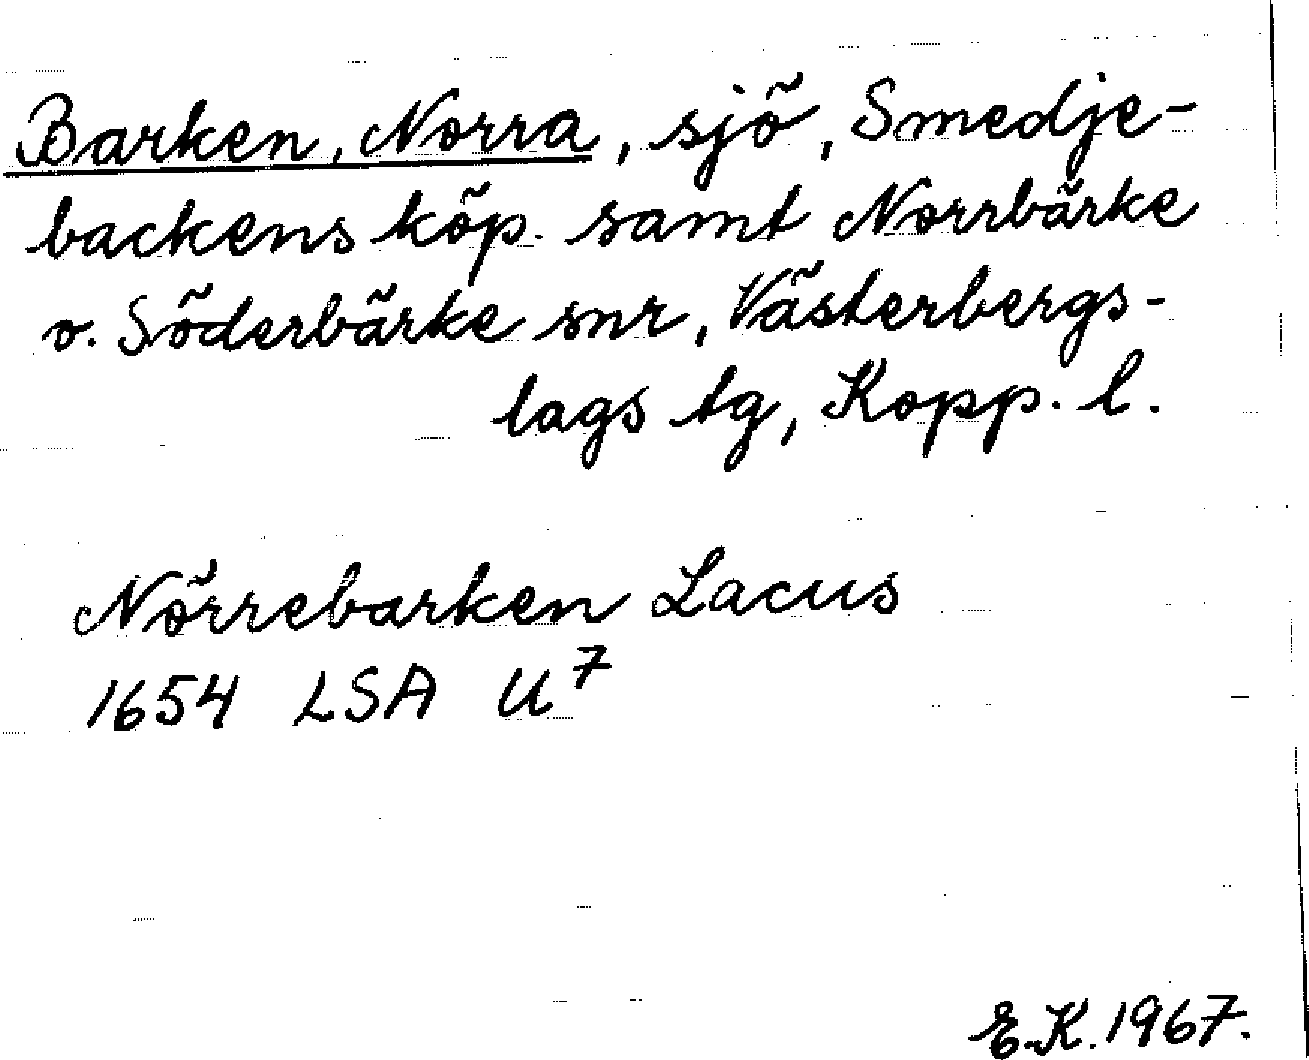 Barken, Norra, sjö, Smedje-
backens köp. samt Norrbärke
o. Söderbärke snr, Västerbergs-
lags tg, Kopp. l.
Nörrebarken Lacus
1654 LSA U⁷
E.K. 1967.